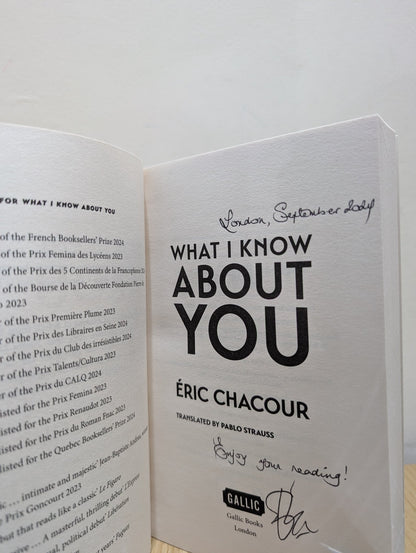 FOR WHAT I KNOW ABOUT YOU
of the French Booksellers' Prize 2024
of the Prix Femina des Lycéens 2023
of the Prix des 5 Continents de la Francophonie
of the Bourse de la Découverte Fondation
2023
of the Prix Première Plume 2023
of the Prix des Libraires en Seine 2024
of the Prix du Club des irrésistibles 2024
of the Prix Talents/Cultura 2023
of the Prix du CALQ 2024
listed for the Prix Femina 2023
listed for the Prix Renaudot 2023
listed for the Prix du Roman Fnac 2023
listed for the Quebec Booksellers' Prize 2024
… intimate and majestic' Jean-Baptiste
Prix Goncourt 2023
but that reads like a classic' Le Figaro
… A masterful, thrilling debut'
political debut' Libération
years'
London, September 2024
WHAT I KNOW
ABOUT
YOU
ÉRIC CHACOUR
TRANSLATED BY PABLO STRAUSS
Enjoy your reading!
GALLIC
Gallic Books
London